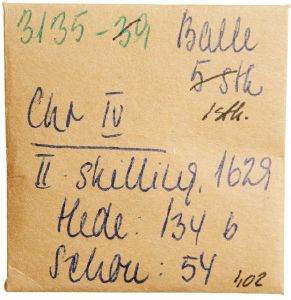 3135-39 Balle
5 stk
1 stk.
Chr IV
II skilling. 1629
Hede: 134 b
Schou: 54
1,02